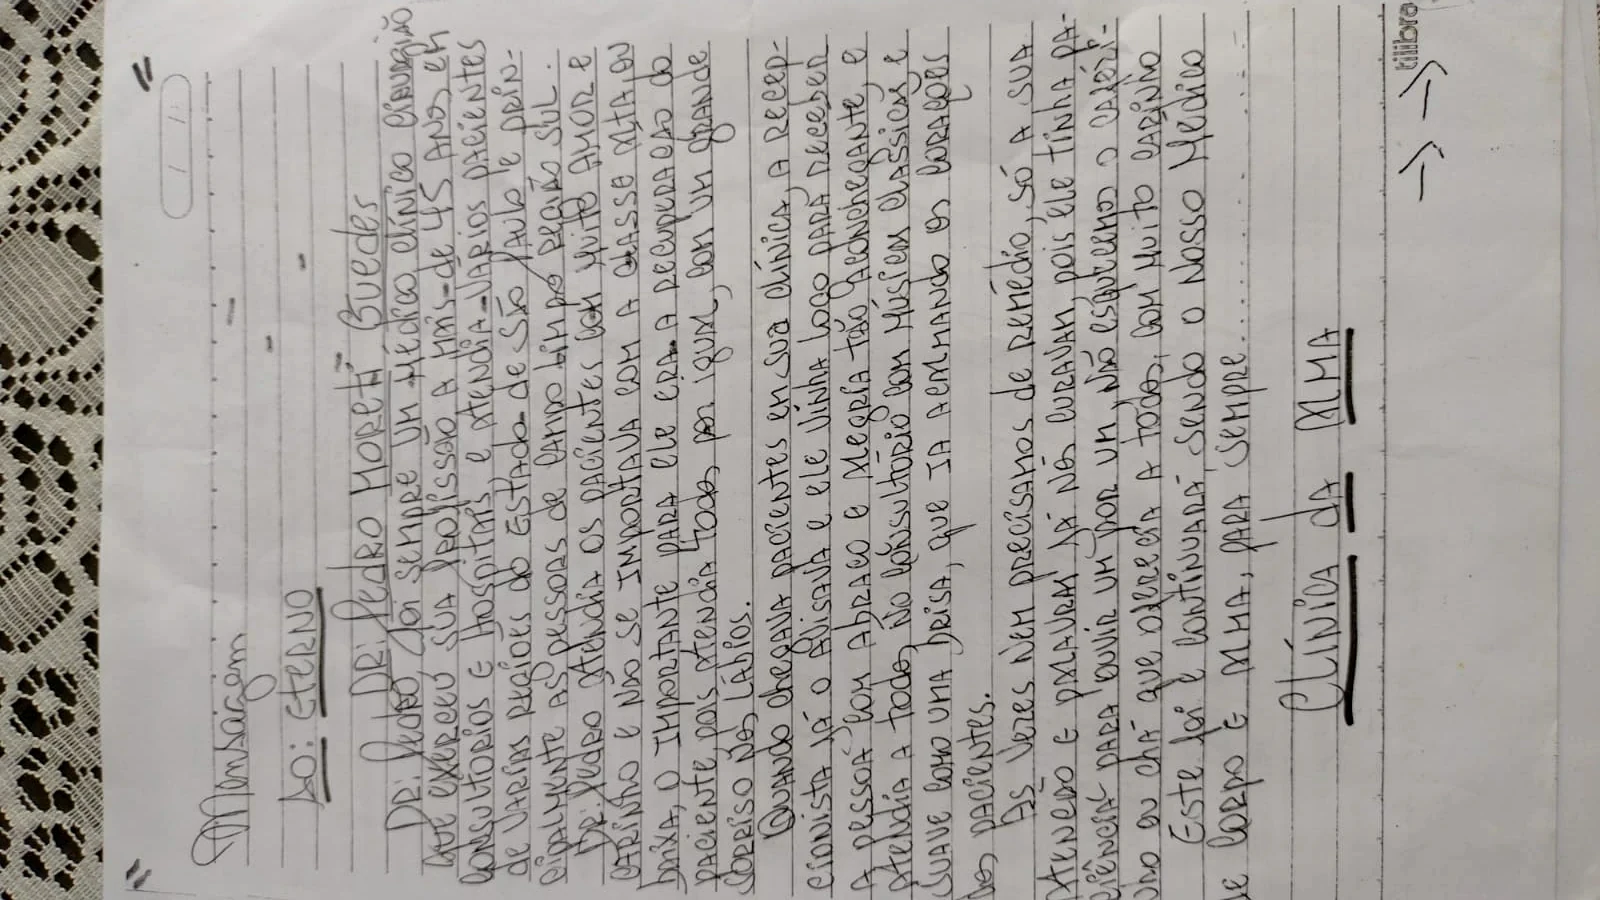 Mensagem
Ao: Eterno
DR: Pedro Moreti Guedes
DR: Pedro foi sempre um Médico clínico cirurgião
que exerceu sua profissão a mais de 45 anos, em
consultórios e hospitais, e atendia vários pacientes
de varias regiões do Estado de São Paulo e prin-
cipalmente as pessoas de campo limpo região sul.
DR: Pedro atendia os pacientes com muito amor e
carinho e não se importava com a classe alta ou
baixa, o importante para ele era a recuperação do
paciente pois atendia todos por igual, com um grande
sorriso nos lábios.
Quando chegava pacientes em sua clínica, a recep-
cionista já o avisava e ele vinha logo para receber
a pessoa com abraço e alegria tão aconchegante, e
atendia a todos, no consultório com músicas clássicas e
suave como uma brisa, que ja acalmando os corações
dos pacientes.
As vezes nem precisamos de remédio, só a sua
atenção e palavras já nos curavam, pois ele tinha pa-
ciência para ouvir um por um, não esquecemo o cafézi-
nho ou chá que oferecia a todos, com muito carinho
Este foi e continuará sendo o nosso Médico
de corpo e alma, para sempre..........
Clínica da Alma
tilibra